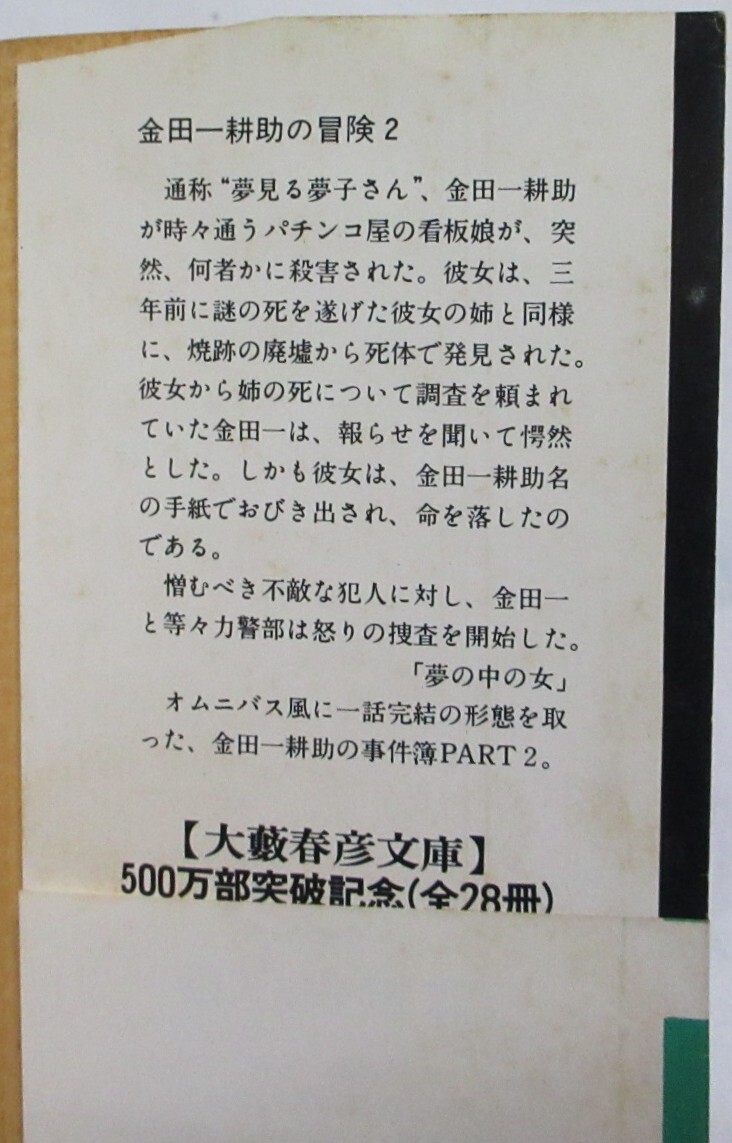 金田一耕助の冒険2
通称“夢見る夢子さん”、金田一耕助
が時々通うパチンコ屋の看板娘が、突
然、何者かに殺害された。彼女は、三
年前に謎の死を遂げた彼女の姉と同様
に、焼跡の廃墟から死体で発見された。
彼女から姉の死について調査を頼まれ
ていた金田一は、報らせを聞いて愕然
とした。しかも彼女は、金田一耕助名
の手紙でおびき出され、命を落したの
である。
憎むべき不敵な犯人に対し、金田一
と等々力警部は怒りの捜査を開始した。
「夢の中の女」
オムニバス風に一話完結の形態を取
った、金田一耕助の事件簿PART2。
【大藪春彦文庫】
500万部突破記念(全28冊)